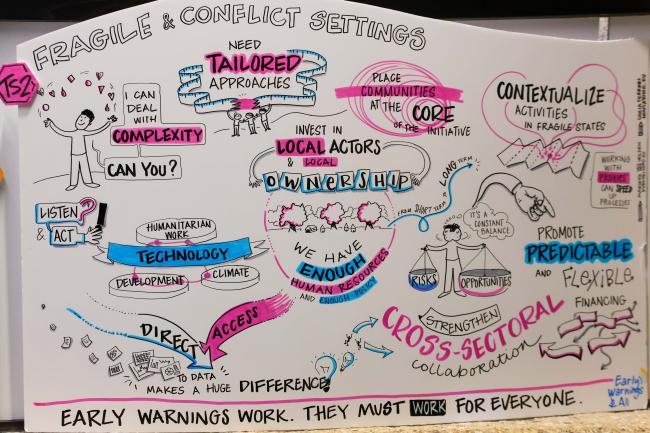 FRAGILE & CONFLICT SETTINGS
TS2
I CAN
DEAL
WITH
COMPLEXITY
CAN YOU?
NEED
TAILORED
APPROACHES
PLACE
COMMUNITIES
AT THE CORE
OF THE INITIATIVE
CONTEXTUALIZE
ACTIVITIES
IN FRAGILE STATES
WORKING
WITH
CAN SPEED
UP
INVEST IN
LOCAL ACTORS
& LOCAL
OWNERSHIP
FROM SHORT TERM
LONG TERM
LISTEN ?
& ACT
HUMANITARIAN
WORK
TECHNOLOGY
DEVELOPMENT
CLIMATE
WE HAVE
ENOUGH
HUMAN RESOURCES
AND ENOUGH POLICY
IT'S A
CONSTANT
BALANCE
RISKS
OPPORTUNITIES
PROMOTE
PREDICTABLE
AND FLEXIBLE
FINANCING
DIRECT
ACCESS
TO DATA
MAKES A HUGE DIFFERENCE
STRENGTHEN
CROSS-SECTORAL
collaboration
Early
Warnings
4 All
EARLY WARNINGS WORK. THEY MUST WORK FOR EVERYONE.